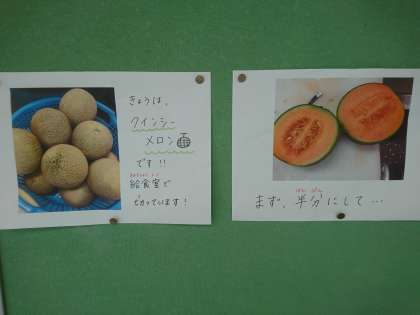 きょうは、
クインシー
メロン
です!!
給食室で
切っています!
はんぶん
まず、半分にして…